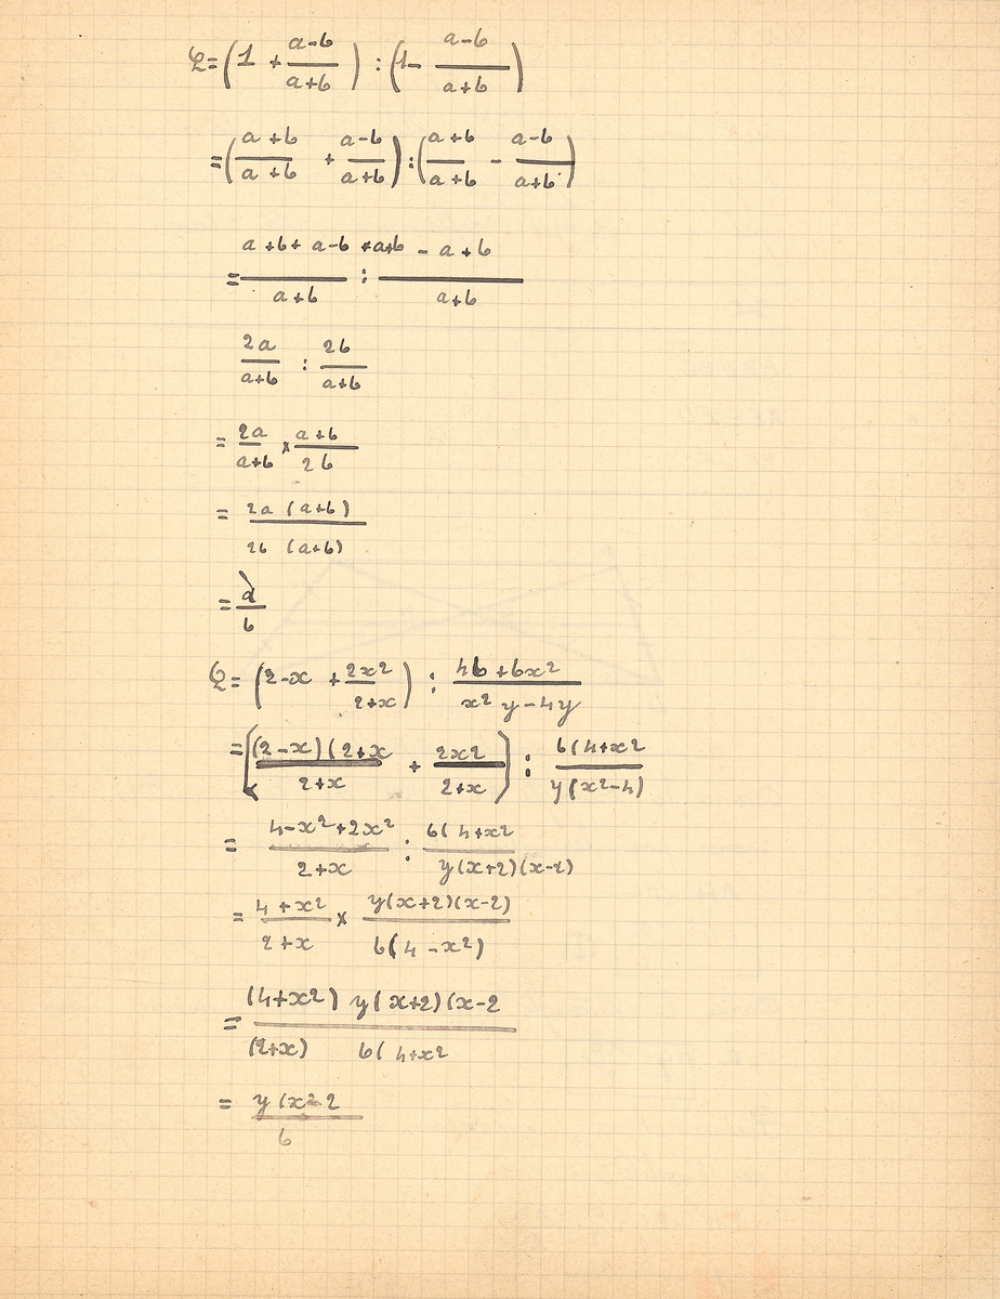 Q = (1 + (a-b)/(a+b)) : (1 - (a-b)/(a+b))
= ((a+b)/(a+b) + (a-b)/(a+b)) : ((a+b)/(a+b) - (a-b)/(a+b))
= (a+b+a-b)/(a+b) : (+a+b-a+b)/(a+b)
2a/(a+b) : 2b/(a+b)
= 2a/(a+b) × (a+b)/2b
= 2a(a+b)/2b(a+b)
= a/b
Q = (2-x + 2x²/(2+x)) : (4b+bx²)/(x²y-4y)
= [(2-x)(2+x/(2+x) + 2x2/(2+x)) : b(4+x²/y(x²-4)
= (4-x²+2x²)/(2+x) : b(4+x²/y(x+2)(x-2)
= (4+x²)/(2+x) × y(x+2)(x-2)/b(4-x²)
= (4+x²)y(x+2)(x-2/(2+x) b(4+x²
= y(x-2/b